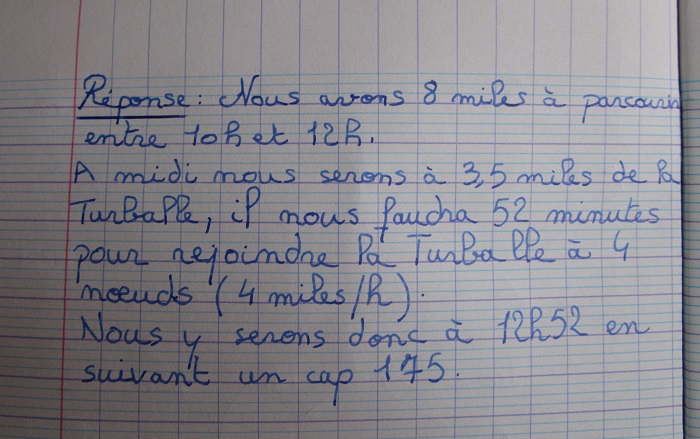 Réponse : Nous avons 8 miles à parcourir
entre 10h et 12h.
A midi nous serons à 3,5 miles de la
Turballe, il nous faudra 52 minutes
pour rejoindre la Turballe à 4
nœuds (4 miles/h).
Nous y serons donc à 12h52 en
suivant un cap 175.